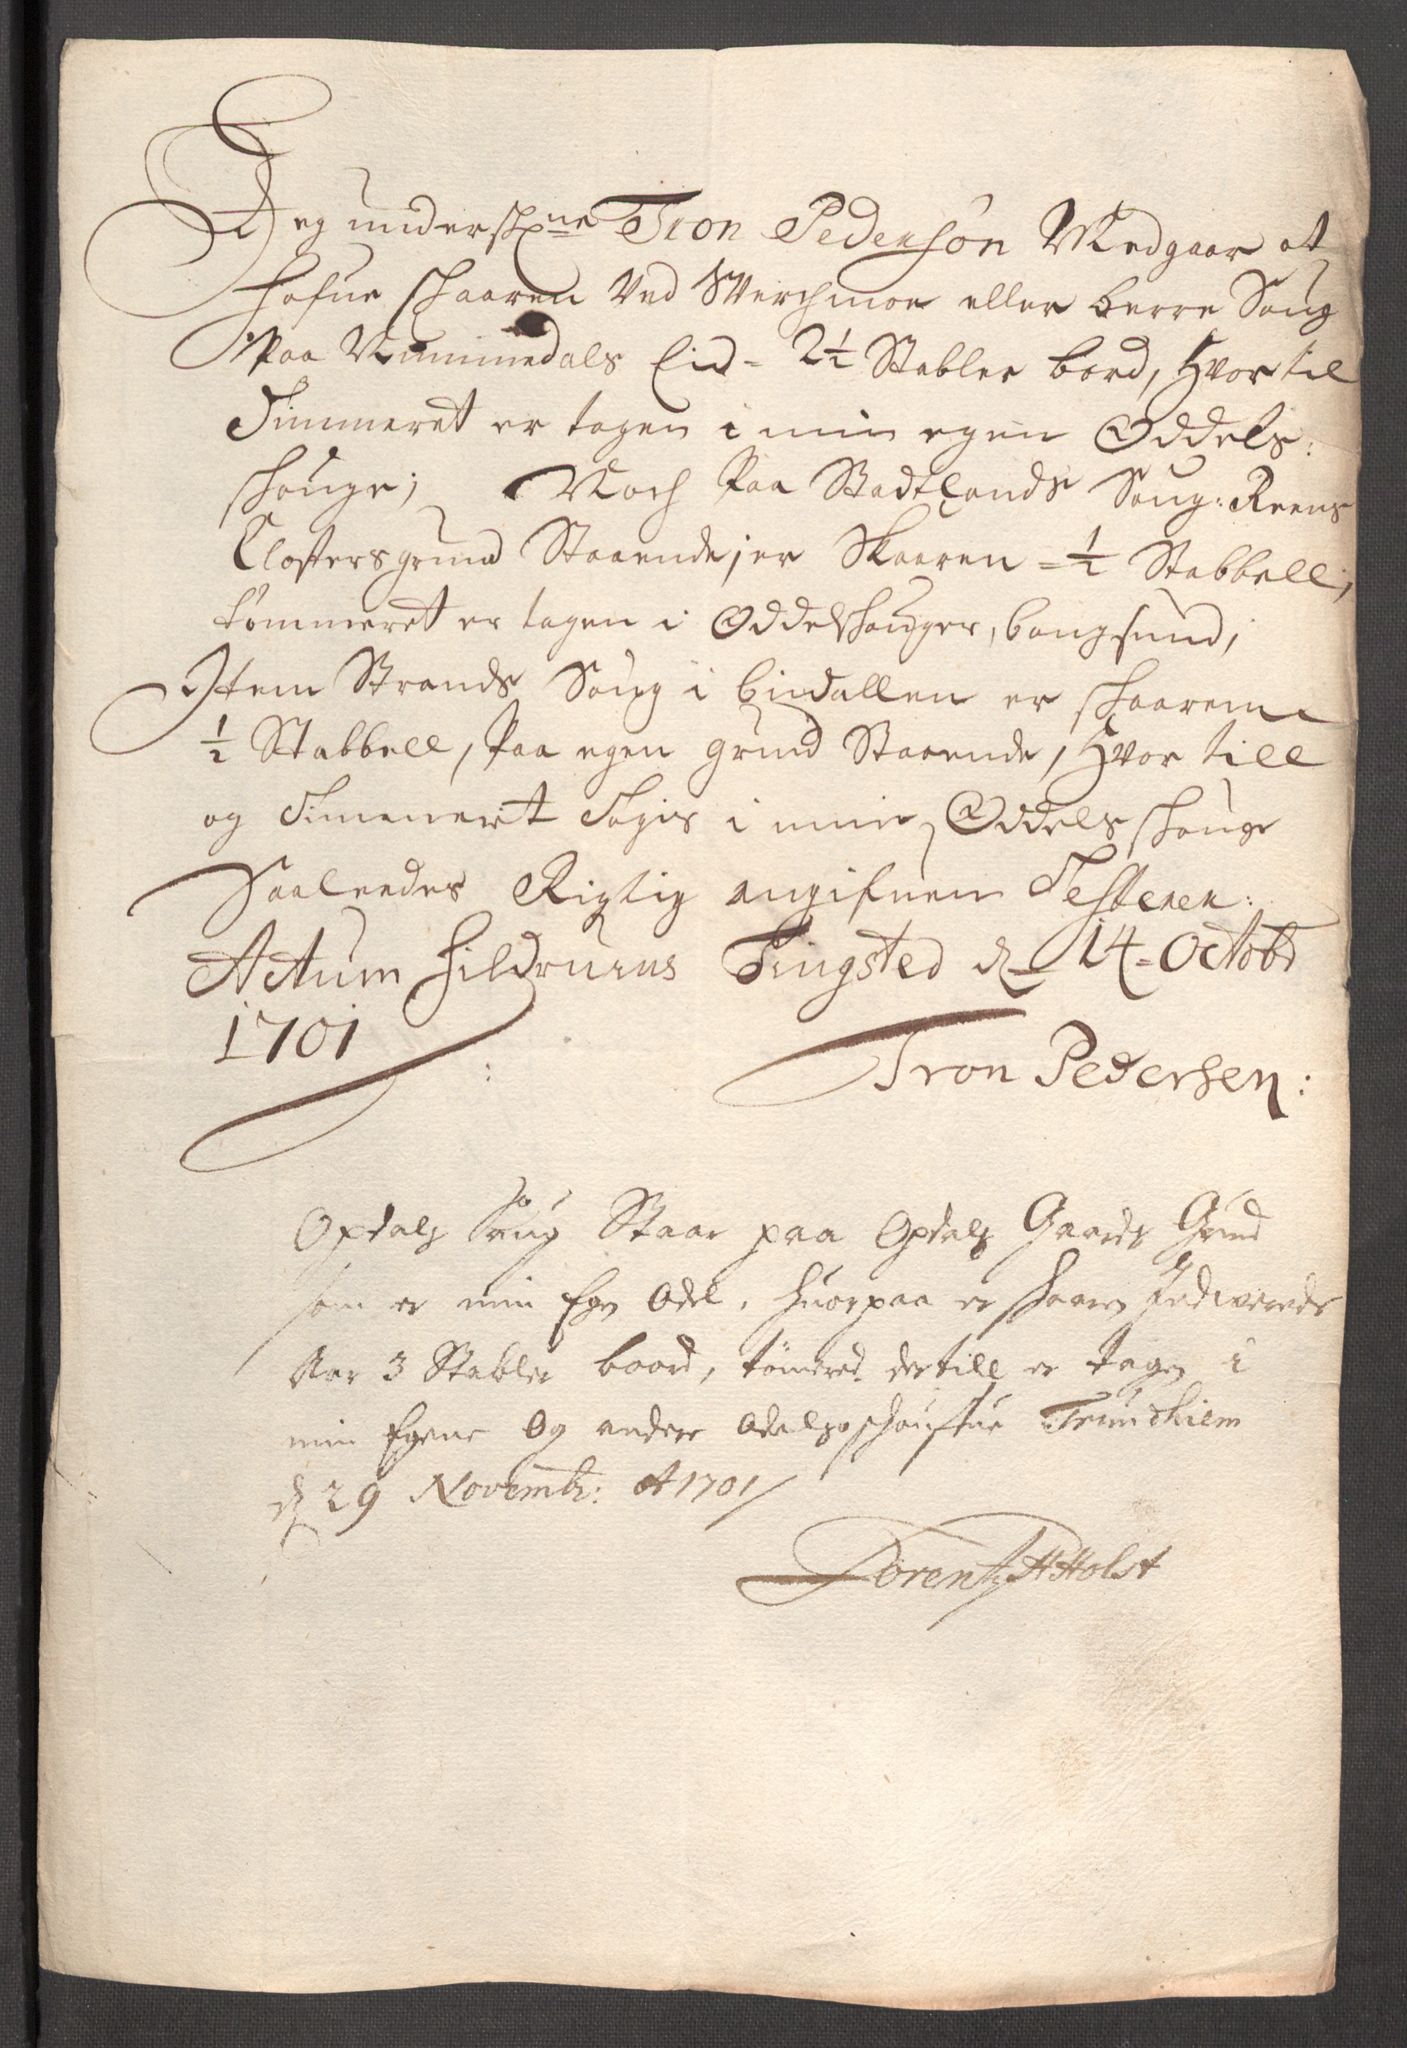 Jeg undersch_ne Tron Pedersøn Medgaar at
hafue schaaren Ved Werchmoe eller berre Saug
Paa Nummedals Eid = 2½ Stabler bord, Hvor til
Timmeret er tagen i min egen Oddels:
schouge; Noch Paa Stadtlands Saug: Reens
Closters grund Staaende, er Skaaren = ½ Stabbell,
tømmeret er tagen i Oddelschouger, bangsund,
Item Strands Saug i bindallen er schaaren
½ Stabbell, Paa egen grund Staaende, Hvor till
og Timmeret Tagis i min Oddels schouge
Saaleedes Rigtig angifuen Testerer:
Actum Hildrums Tingsted d= 14 = Octobr
1701 :
Tron Pedersen:
Opdals Saug Staar paa Opdals Gaards Grund
som er min Egen Odel, huorpaa er schaaren
Aar 3 Stabler boord, tømered dertill er tagen i
min Egene Og andere Odels schoufue Trundhiem
d 29 Novembr: A 1701/
Lorentz H Holst